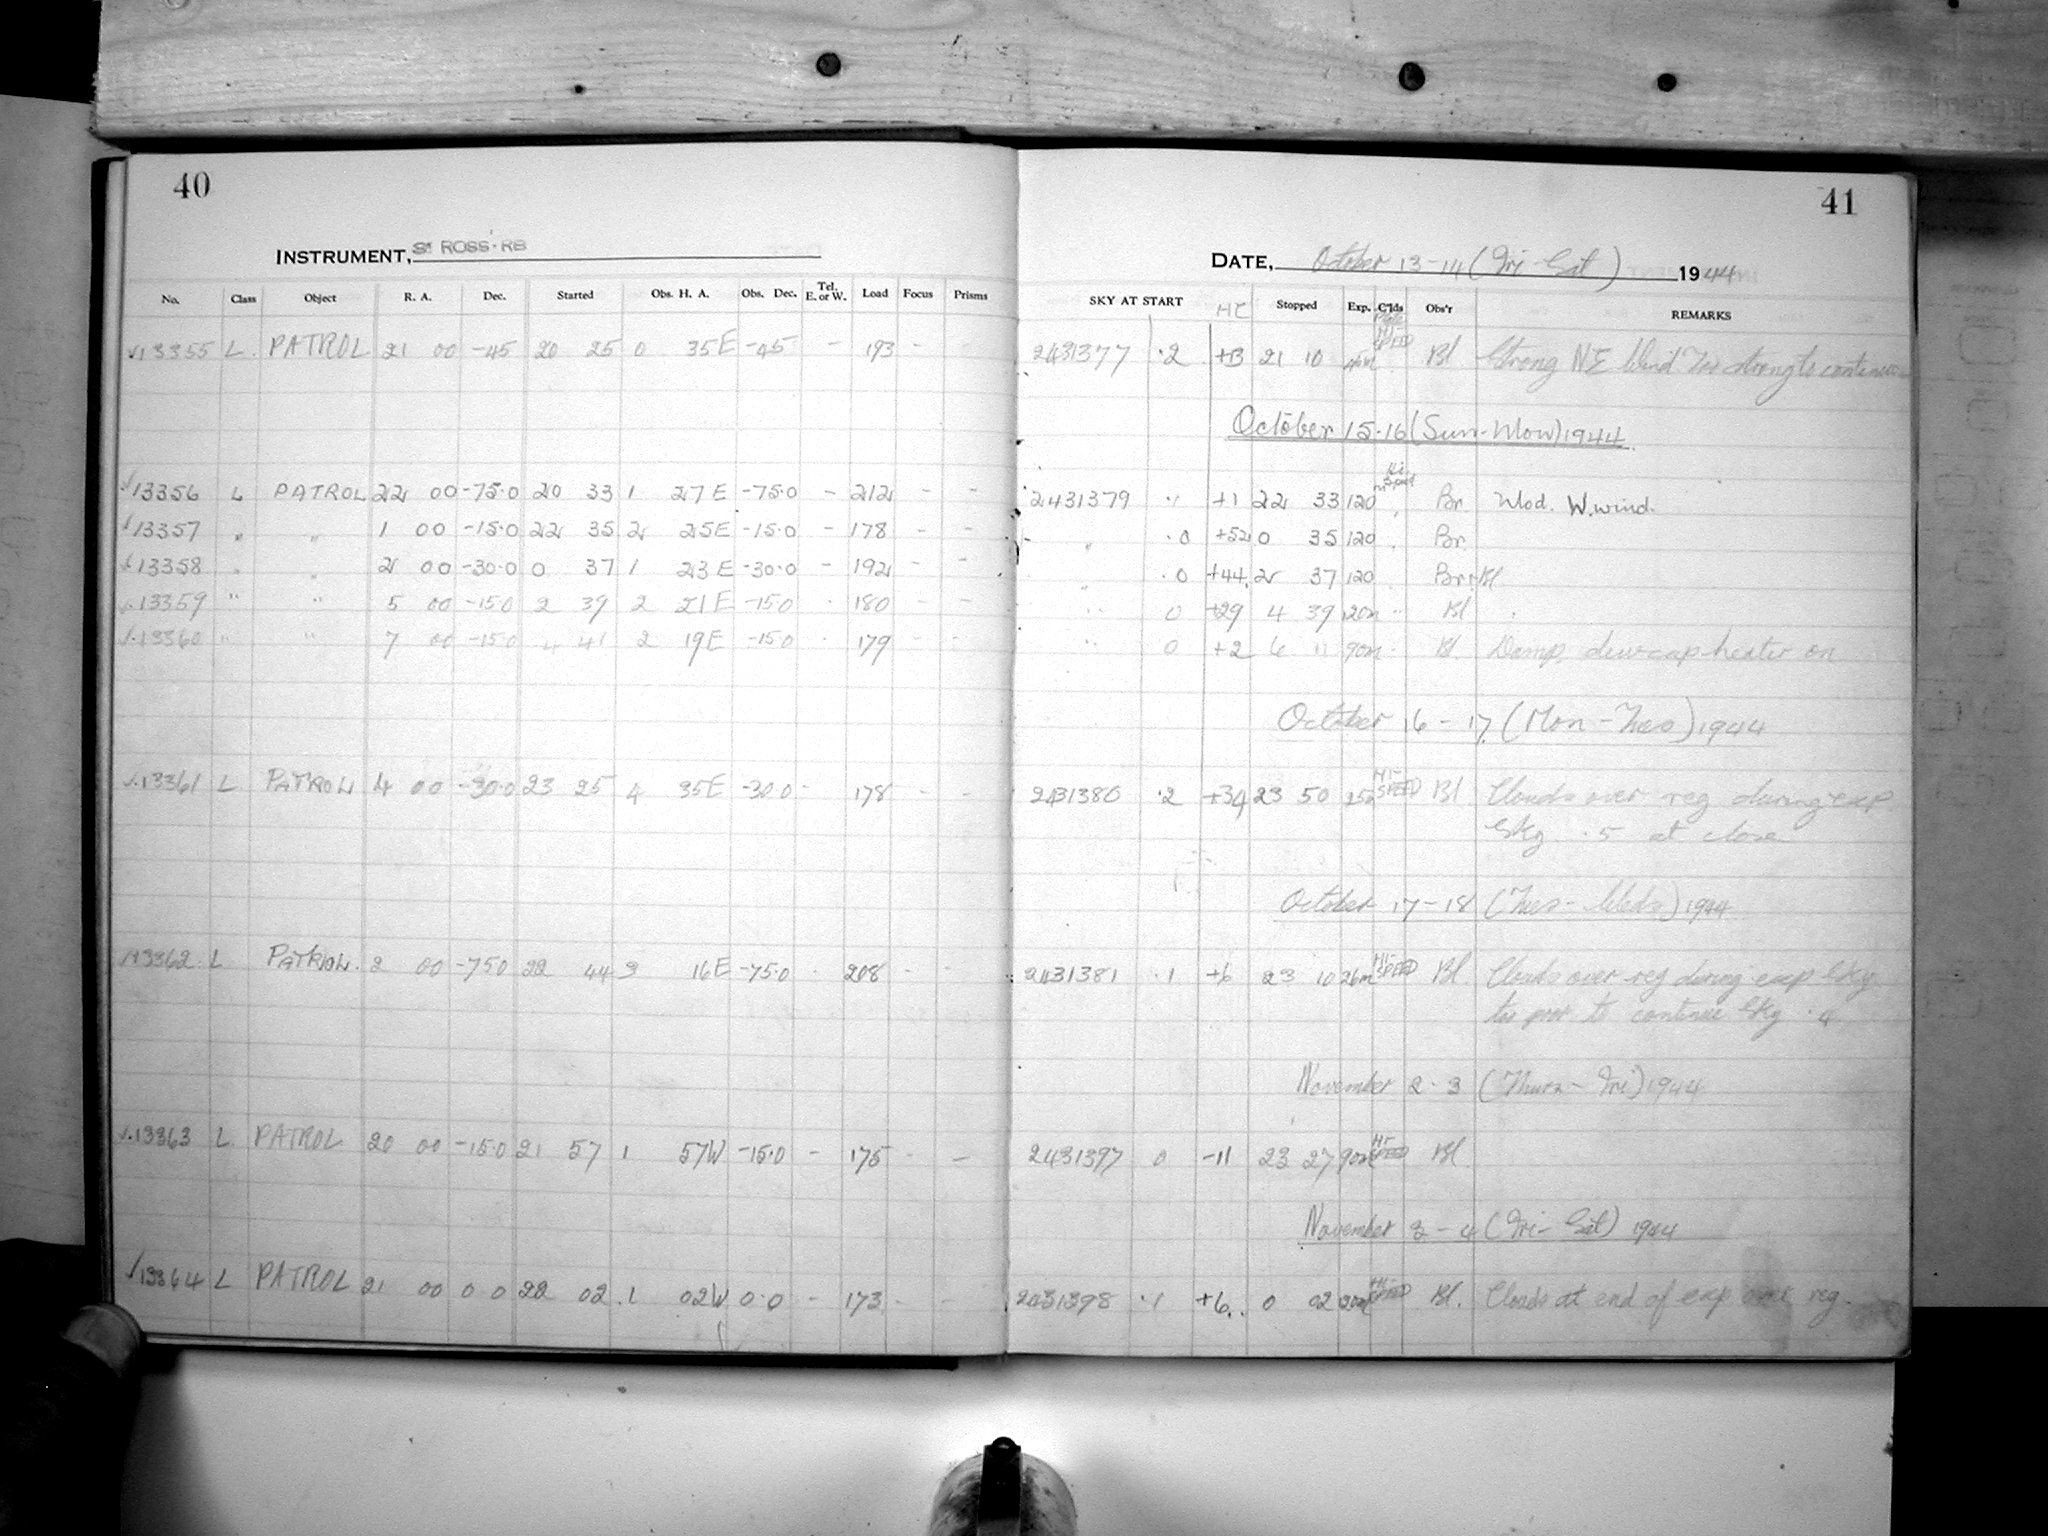 40
INSTRUMENT, ST ROSS-RB
No. Class Object R. A. Dec. Started Obs. H. A. Obs. Dec. Tel. E. or W. Load Focus Prisms
13355 L. PATROL 21 00 -45 20 25 0 35E -45 - 193 -
13356 L PATROL 22 00 -75.0 20 33 1 27E -75.0 - 212 - -
13357 " " 1 00 -15.0 22 35 2 25E -15.0 - 178 - -
13358 " " 2 00 -30.0 0 37 1 23E -30.0 - 192 - -
13359 " " 5 00 -15.0 2 39 2 21E -15.0 - 180 - -
13360 " " 7 00 -15.0 4 41 2 19E -15.0 - 179 - -
13361 L PATROL 4 00 -30.0 23 25 4 35E -30.0 - 178 - -
13362 L PATROL. 2 00 -75.0 22 44 3 16E -75.0 - 208 - -
13363 L PATROL 20 00 -15.0 21 57 1 57W -15.0 - 175 - -
13364 L PATROL 21 00 0 0 22 02 1 02W 0.0 - 173 - -
41
DATE, October 13-14 (Fri-Sat) 1944
SKY AT START HC Stopped Exp. C'lds Obs'r REMARKS
Plate
HI-SPEED
2431377 .2 +13 21 10 Bl Strong NE Wind Too strong to continue
October 15-16 (Sun-Mon) 1944
Hi Speed
2431379 .1 +1 22 33 120m Br. Mod. W. wind.
" .0 +52 0 35 120 " Br.
" .0 +44 2 37 120 " Br. + Bl
" 0 +29 4 39 120m " Bl
" 0 +2 6 11 90m " Bl. Damp, dewcap heater on
October 16-17 (Mon-Tues) 1944
2431380 .2 +34 23 50 25m HI-SPEED Bl Clouds over reg during exp
Sky .5 at close
October 17-18 (Tues-Weds) 1944
2431381 .1 +6 23 10 26m HI-SPEED Bl. Clouds over reg during exp Sky
too poor to continue Sky .4
November 2-3 (Thurs-Fri) 1944
2431397 0 -11 23 27 90m HI-SPEED Bl.
November 3-4 (Fri-Sat) 1944
2431398 .1 +6 0 02 120m HI-SPEED Bl. Clouds at end of exp over reg.